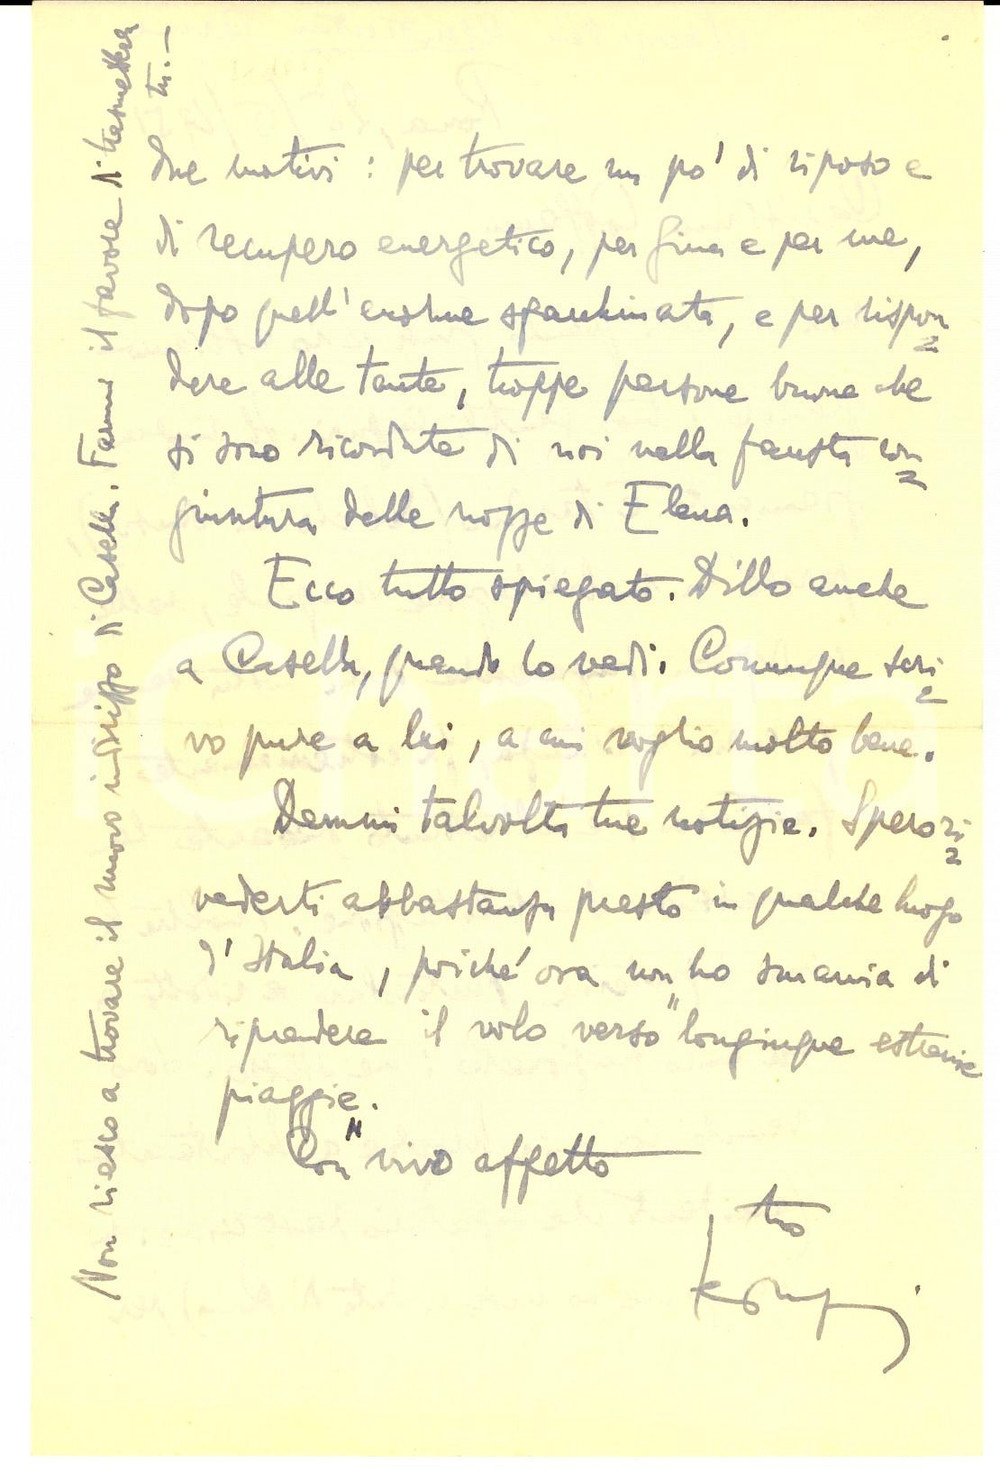 due motivi : per trovare un po' di riposo e
di recupero energetico, per Gina e per me,
dopo quell'enorme sgambinata, e per rispon
dere alle tante, troppe persone buone che
si sono ricordate di noi nella fausta con
giuntura delle nozze di Elena.
Ecco tutto spiegato. Dillo anche
a Casella, quando lo vedi. Comunque scri
vo pure a lui, a cui voglio molto bene.
Dammi talvolta tue notizie. Spero ri
vederti abbastanza presto in qualche luogo
d'Italia, poiché ora non ho smania di
riprendere il volo verso "longinque estranie
piaggie."
Con vivo affetto
tuo
Non riesco a trovare il nuovo indirizzo di Casella. Fammi il favore di trasmetter
tu.-
icharta